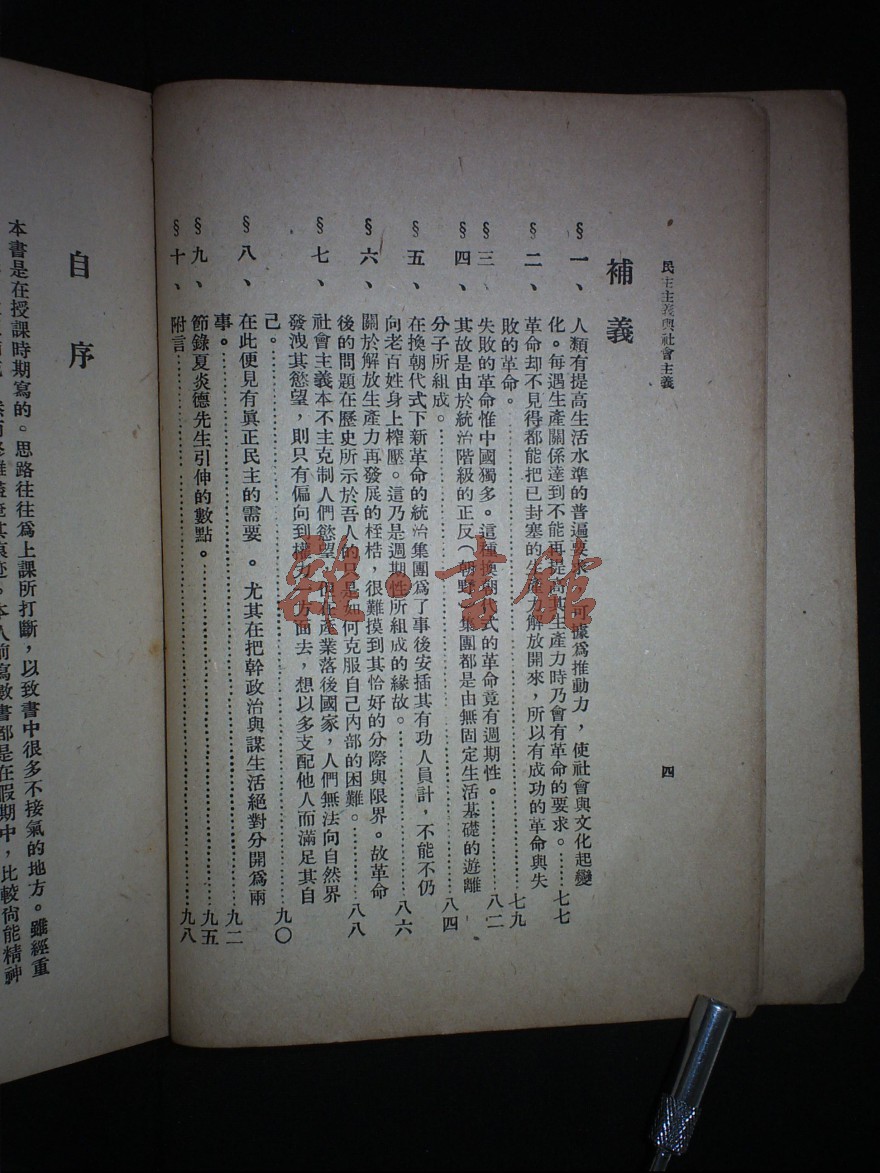 民主主義與社會主義
四
補義
§一、人類有提高生活水準的普遍要求，可據爲推動力，使社會與文化起變
化。每遇生產關係達到不能再提高其生產力時乃會有革命的要求。……七七
§二、革命却不見得都能把已封塞的生產力解放開來，所以有成功的革命與失
敗的革命。……七九
§三、失敗的革命惟中國獨多。這種換朝代式的革命竟有週期性。……八二
§四、其故是由於統治階級的正反（朝野）集團都是由無固定生活基礎的遊離
分子所組成。……八四
§五、在換朝代式下新革命的統治集團爲了事後安插其有功人員計，不能不仍
向老百姓身上榨壓。這乃是週期性所組成的緣故。……八六
§六、關於解放生產力再發展的桎梏，很難摸到其恰好的分際與限界。故革命
後的問題在歷史所示於吾人的只是如何克服自己內部的困難。……八八
§七、社會主義本不主克制人們慾望，但在產業落後國家，人們無法向自然界
發洩其慾望，則只有偏向到權力一方面去，想以多支配他人而滿足其自
己。……九〇
§八、在此便見有眞正民主的需要。尤其在把幹政治與謀生活絕對分開爲兩
事。……九二
§九、節錄夏炎德先生引伸的數點。……九五
§十、附言……九八
自序
本書是在授課時期寫的。思路往往爲上課所打斷，以致書中很多不接氣的地方。雖經重
其痕迹。本人前寫數書都是在假期中，比較尙能精神
雜·書館